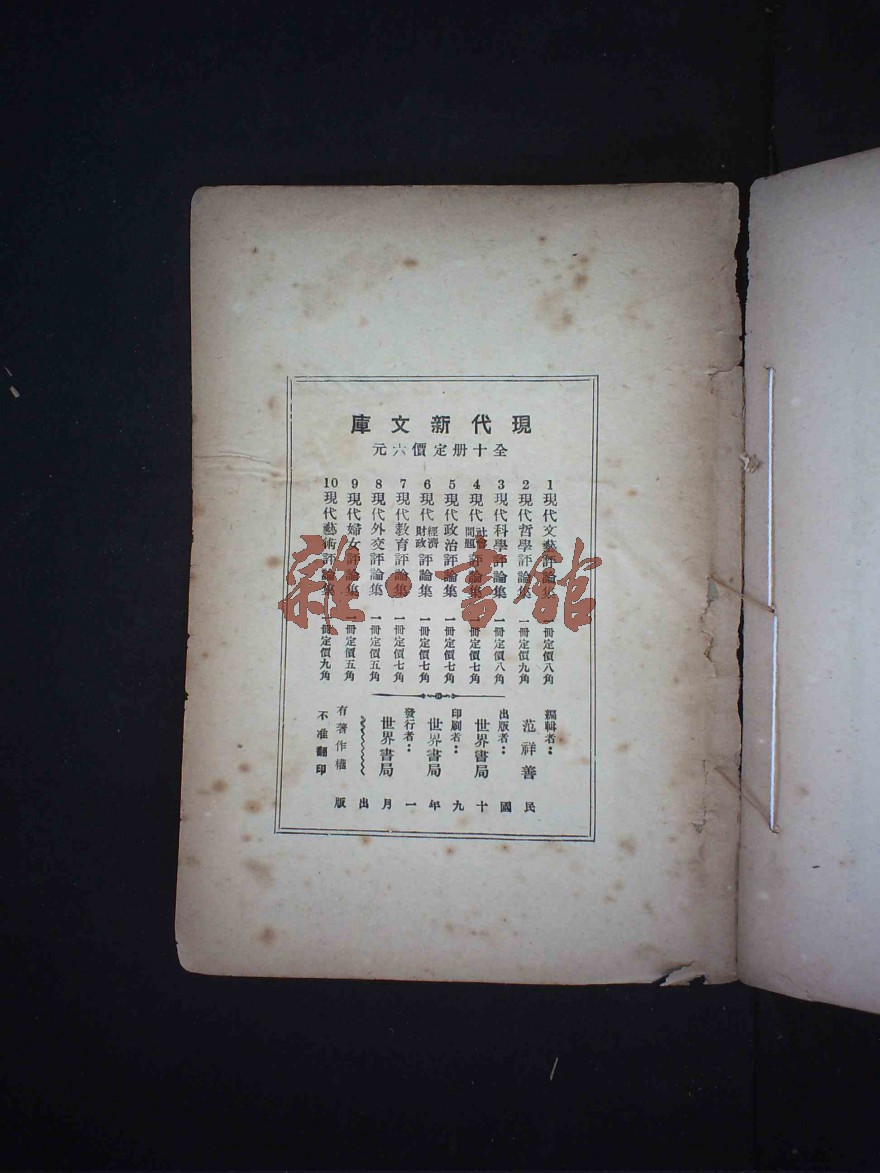 現代新文庫
全十册定價六元
1 現代文藝評論集 一冊定價八角
2 現代哲學評論集 一冊定價九角
3 現代科學評論集 一冊定價八角
4 現代社會問題評論集 一冊定價七角
5 現代政治評論集 一冊定價七角
6 現代經濟財政評論集 一冊定價七角
7 現代教育評論集 一冊定價七角
8 現代外交評論集 一冊定價五角
9 現代婦女評論集 一冊定價五角
10 現代藝術評論集 一冊定價九角
編輯者：
范祥善
出版者：
世界書局
印刷者：
世界書局
發行者：
世界書局
有著作權
不准翻印
民國十九年一月出版
雜·書館